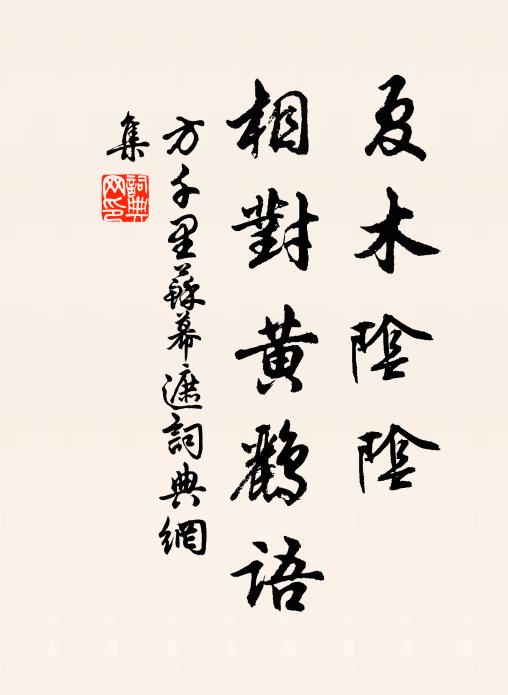 夏木陰陰
相對黃鸝語
方千里蘇幕遮詞典網
集
詞典
网印